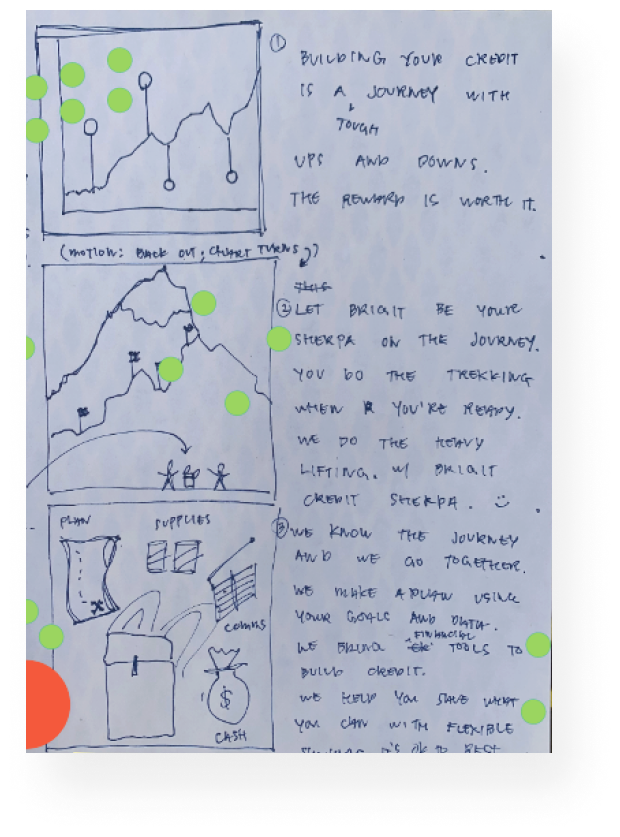 ①
BUILDING YOUR CREDIT
IS A JOURNEY WITH
TOUGH
UPS AND DOWNS.
THE REWARD IS WORTH IT.
(MOTION: BACK OUT; CHART TURNS)
THIS
② LET BRIGIT BE YOUR
SHERPA ON THE JOURNEY.
YOU DO THE TREKKING
WHEN YOU'RE READY.
WE DO THE HEAVY
LIFTING. W/ BRIGIT
CREDIT SHERPA. :)
PLAN
SUPPLIES
COMMS
$
CASH
③ WE KNOW THE JOURNEY
AND WE GO TOGETHER.
WE MAKE A PLAN USING
YOUR GOALS AND DATA.
FINANCIAL
WE BRING TOOLS TO
BUILD CREDIT.
WE HELP YOU SAVE WHAT
YOU CAN WITH FLEXIBLE
IT'S OK TO REST